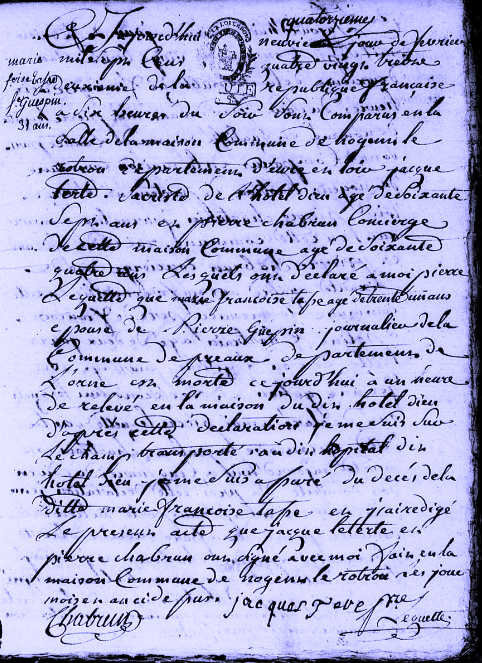 aujourd'hui neuvieme quatorzieme jour de
marie
mil sept cent quatre vingt treize
fse
deuxieme de la republique française
Guespin
31 ans
a dix heures du soir sont comparus en la
salle de la maison Commune de nogent le
rotrou departement d'eure en loir jacque
terte de l'hotel dieu age de soixante
sept ans et pierre chabrun Concierge
de cette maison Commune age de soixante
quatre ans lesquels ont declare a moi pierre
Lequette que marie francoise tape age de trente un ans
epouse de Pierre Guespin journalier de la
Commune de preaux departement de
L'orne est morte cejourd'hui a un heure
de relevé en la maison du dit hotel dieu
d'apres cette declaration je me suis sur
Le champ transporte au dit hopital dit
hotel dieu je me suis assuré du decés de la
ditte marie francoise tape et j'ai redigé
Le present acte que jacque leterte et
pierre chabrun ont signé avec moi fait en la
maison Commune de nogent le rotrou les jour
mois et an ci dessus jacques
Chabrun Lequette